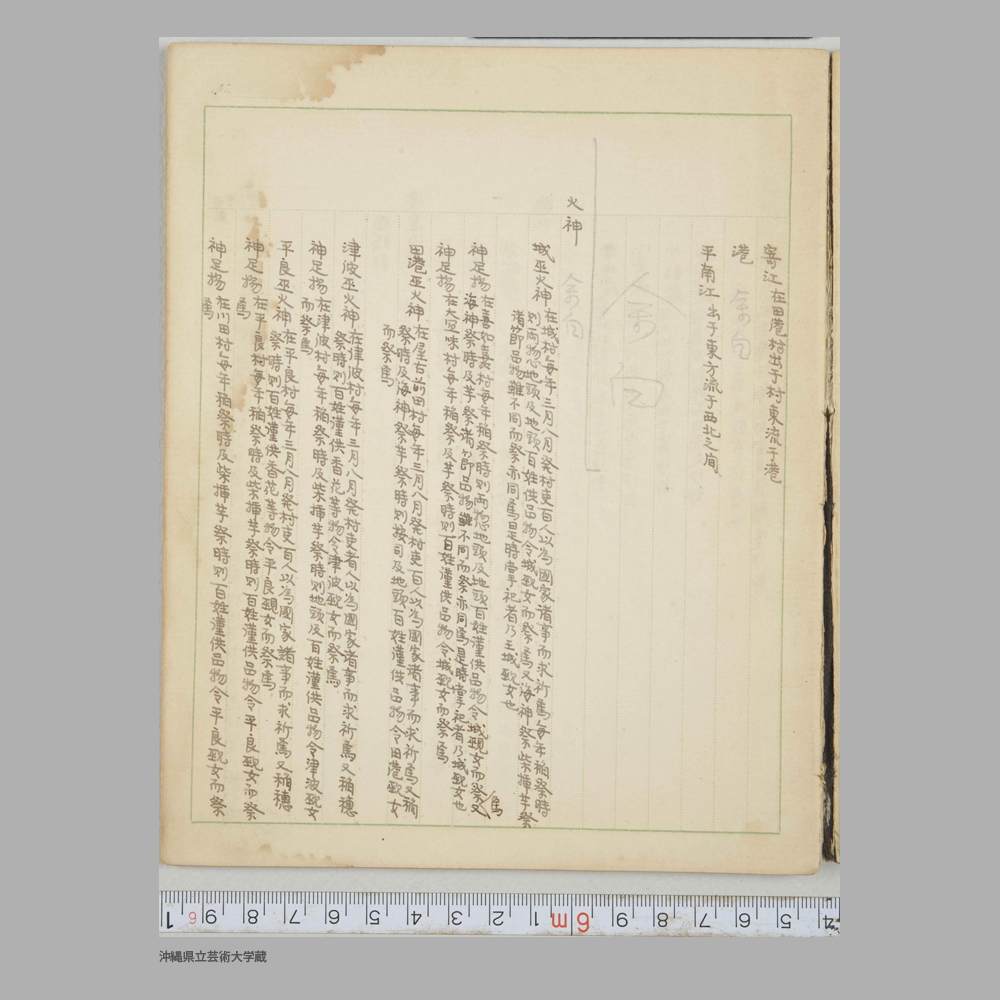 寄江 在田港村出于村東流于港
港 余白
平南江 出于東方流于西北之間
余白
火神 余白
城巫火神 在城村毎年三月八月癸村吏百人以為國家諸事而求祈焉毎年稲祭時
則両惣地頭及地頭百姓供品物令城巫女而祭焉又海神祭柴揷芋祭
諸節品物雖不同而祭亦同焉是時當于祀者乃王城巫女也
神足揚 在喜如嘉村毎年稲祭時則両惣地頭及地頭百姓謹供品物令城巫女而祭焉又
海神祭時及芋祭諸節品物雖不同而祭亦同焉是時當于祀者乃城巫女也
神足揚 在大宜味村毎年稲祭及芋祭時則百姓謹供品物令城巫女而祭焉
田港巫火神 在屋古前田村毎年三月八月癸村吏百人以為國家諸事而求祈焉又稲
祭時及海神祭芋祭時則按司及地頭百姓謹供品物令田港巫女
而祭焉
津波巫火神 在津波村毎年三月八月癸村吏者人以為國家諸事而求祈焉又稲穂
祭時則百姓謹供香花等物令津波巫女而祭焉
神足揚 在津波村毎年稲祭時及柴揷芋祭時則地頭及百姓謹供品物令津波巫女
而祭焉
平良巫火神 在平良村毎年三月八月癸村吏百人以為國家諸事而求祈焉又稲穂
祭時則百姓謹供香花等物令平良巫女而祭焉
神足揚 在平良村毎年稲祭時及柴揷芋祭時則百姓謹供品物令平良巫女而祭
焉
神足揚 在川田村毎年稲祭時及柴揷芋祭時則百姓謹供品物令平良巫女而祭
焉
1 6 9 8 7 6 5 4 3 2 1 6m 9 8 7 6 5 4
沖縄県立芸術大学蔵